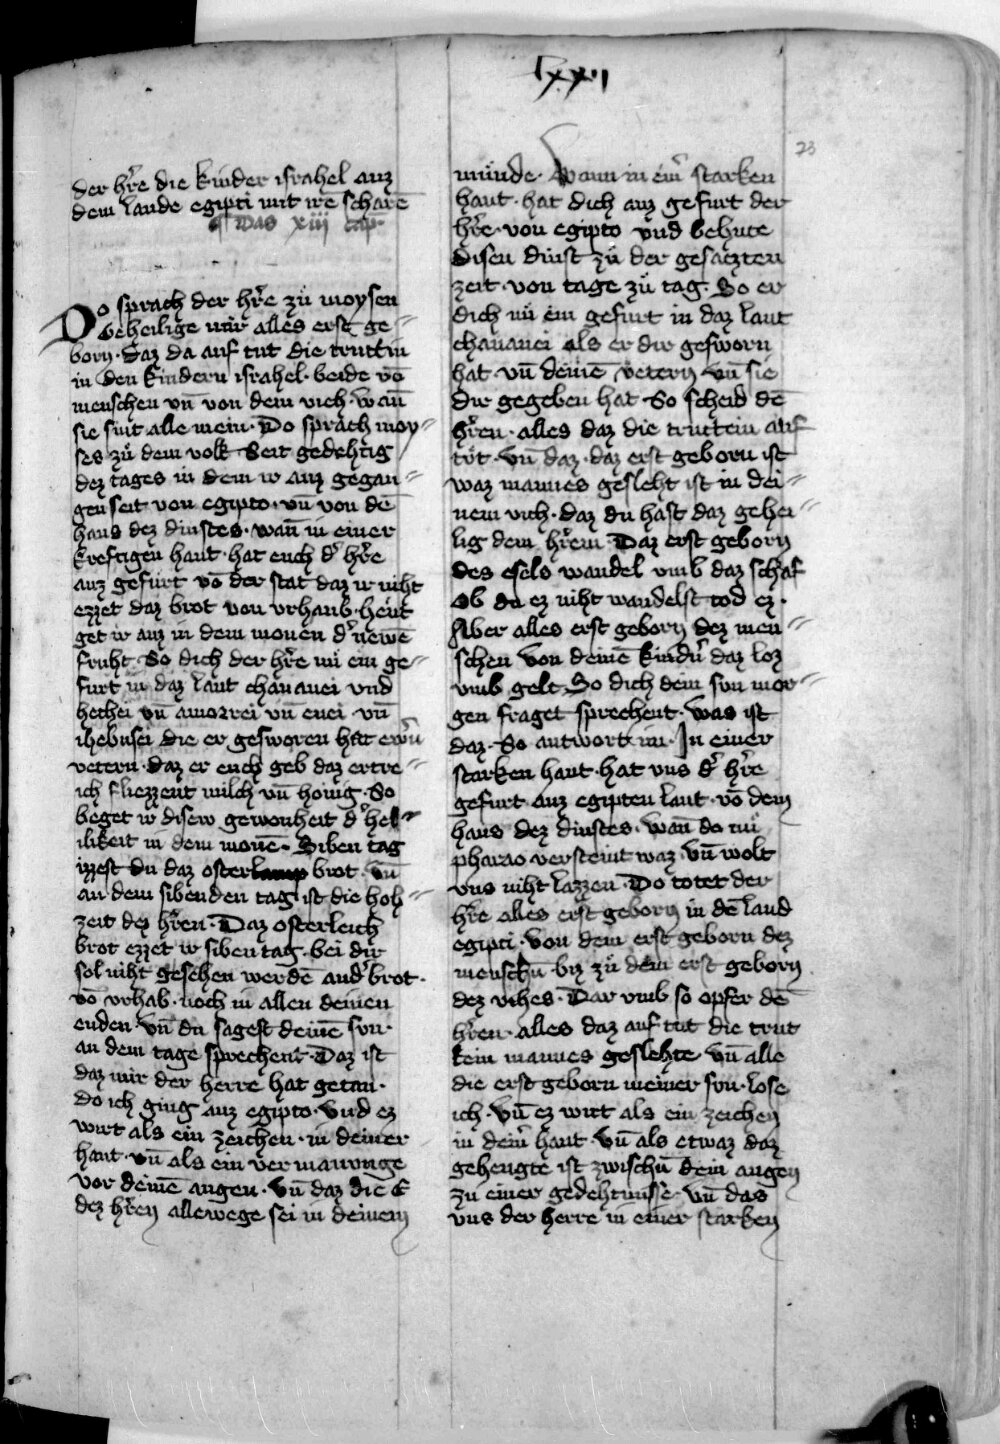 lxxij
23
der hr̄e die kinder israhel auz
dem lande egipti mit irē scharē
¶ Das xiij cap̄
Do sprach der hr̄e zů moysen
Geheilige mir alles erst ge⸗
born · daz da auf tut die truttin
in den kindern israhel · beide vō
menschen vn̄ von dem vieh · wan̄
sie sint alle mein · Do sprach moy⸗
ses zů dem volk Seit gedehtig
dez tages in dem ir auz gegan⸗
gen seit von egipto · vn̄ von dē
haus dez dinstes · wan̄ in einer
kreftigen hant · hat euch d̓ hr̄e
auz gefurt vō der stat daz ir niht
ezzet daz brot von vrhaub · heut
get ir auz in dem monen d̓ newē
fruht · So dich der hr̄e nů ein ge⸗
furt in daz lant chananei vnd
hethei vn̄ amorrei vn̄ euei · vn̄
ihebusei die er gesworen hat ewn̄
vetern · daz er euch geb daz ertre⸗
ich fliezzent milch vn̄ honig · So
beget ir disew gewonheit d̓ hel⸗
ilikeit in dem monē · Siben tag
izzest du daz osterlamp brot · vn̄
an dem sibenden tag ist die hoh⸗
zeit dez hr̄en · Daz osterleich
brot ezzet ir siben tag · bei dir
sol niht gesehen werdē and̓ brot ·
vō vrhab · noch in allen deinen
enden · vn̄ du sagest deinē sun ·
an dem tage sprechent · Daz ist
daz mir der herre hat getan ·
do ich ging auz egipto · vnd ez
wirt als ein zeichen · in deiner
hant · vn̄ als ein vermanunge
vor deinē augen · vn̄ daz die E
dez hr̄en allewege sei in deinem
můnde · Wann in eim̄ starken
hant · hat dich auz gefurt der
hr̄e · von egipto vnd behute
disen dinst zů der gesaczten
zeit · von tage zů tag · So er
dich nů ein gefurt in daz lant
chananei als er dir gesworn
hat · vn̄ deinē vetern vn̄ sie
dir gegeben hat · So scheid dē
hr̄en · alles daz die truttein auf
tůt · vn̄ daz · daz erst geborn ist
waz mannes gesleht ist in dei⸗
nem vieh · daz du hast daz gehei⸗
lig dem hr̄em Daz erst geborn
des esels wandel vmb daz schaf
Ob du ez niht wandelst tod ez ·
Aber alles erst geborn dez men⸗
schen von deinē kindn̄ daz loz
vmb gelt · So dich dein sun mor⸗
gen fraget sprechent · was ist
daz · So antwort im · In einer
starken hant · hat vns d̓ hr̄e
gefurt auz egipten lant · vō dem
haus dez dinstes · wan̄ do nů
pharao versteint waz · vn̄ wolt
vns niht lazzen · Do totet der
hr̄e alles erst geborn in dē land
egipti · von dem erst geborn dez
menschn̄ · biz zů dem erst geborn
dez vihes · Dar vmb so opfer dē
hr̄en · alles daz auf tut die trut
tein mannes geslehte · vn̄ alle
die erst geborn meiner sun · lose
ich · vn̄ ez wirt als ein zeichen
in dein̄ hant · vn̄ als etwaz daz
gehengte ist zwischn̄ dein augen
zu einer gedehtnisse · vn̄ das
vns der herre in einer starken